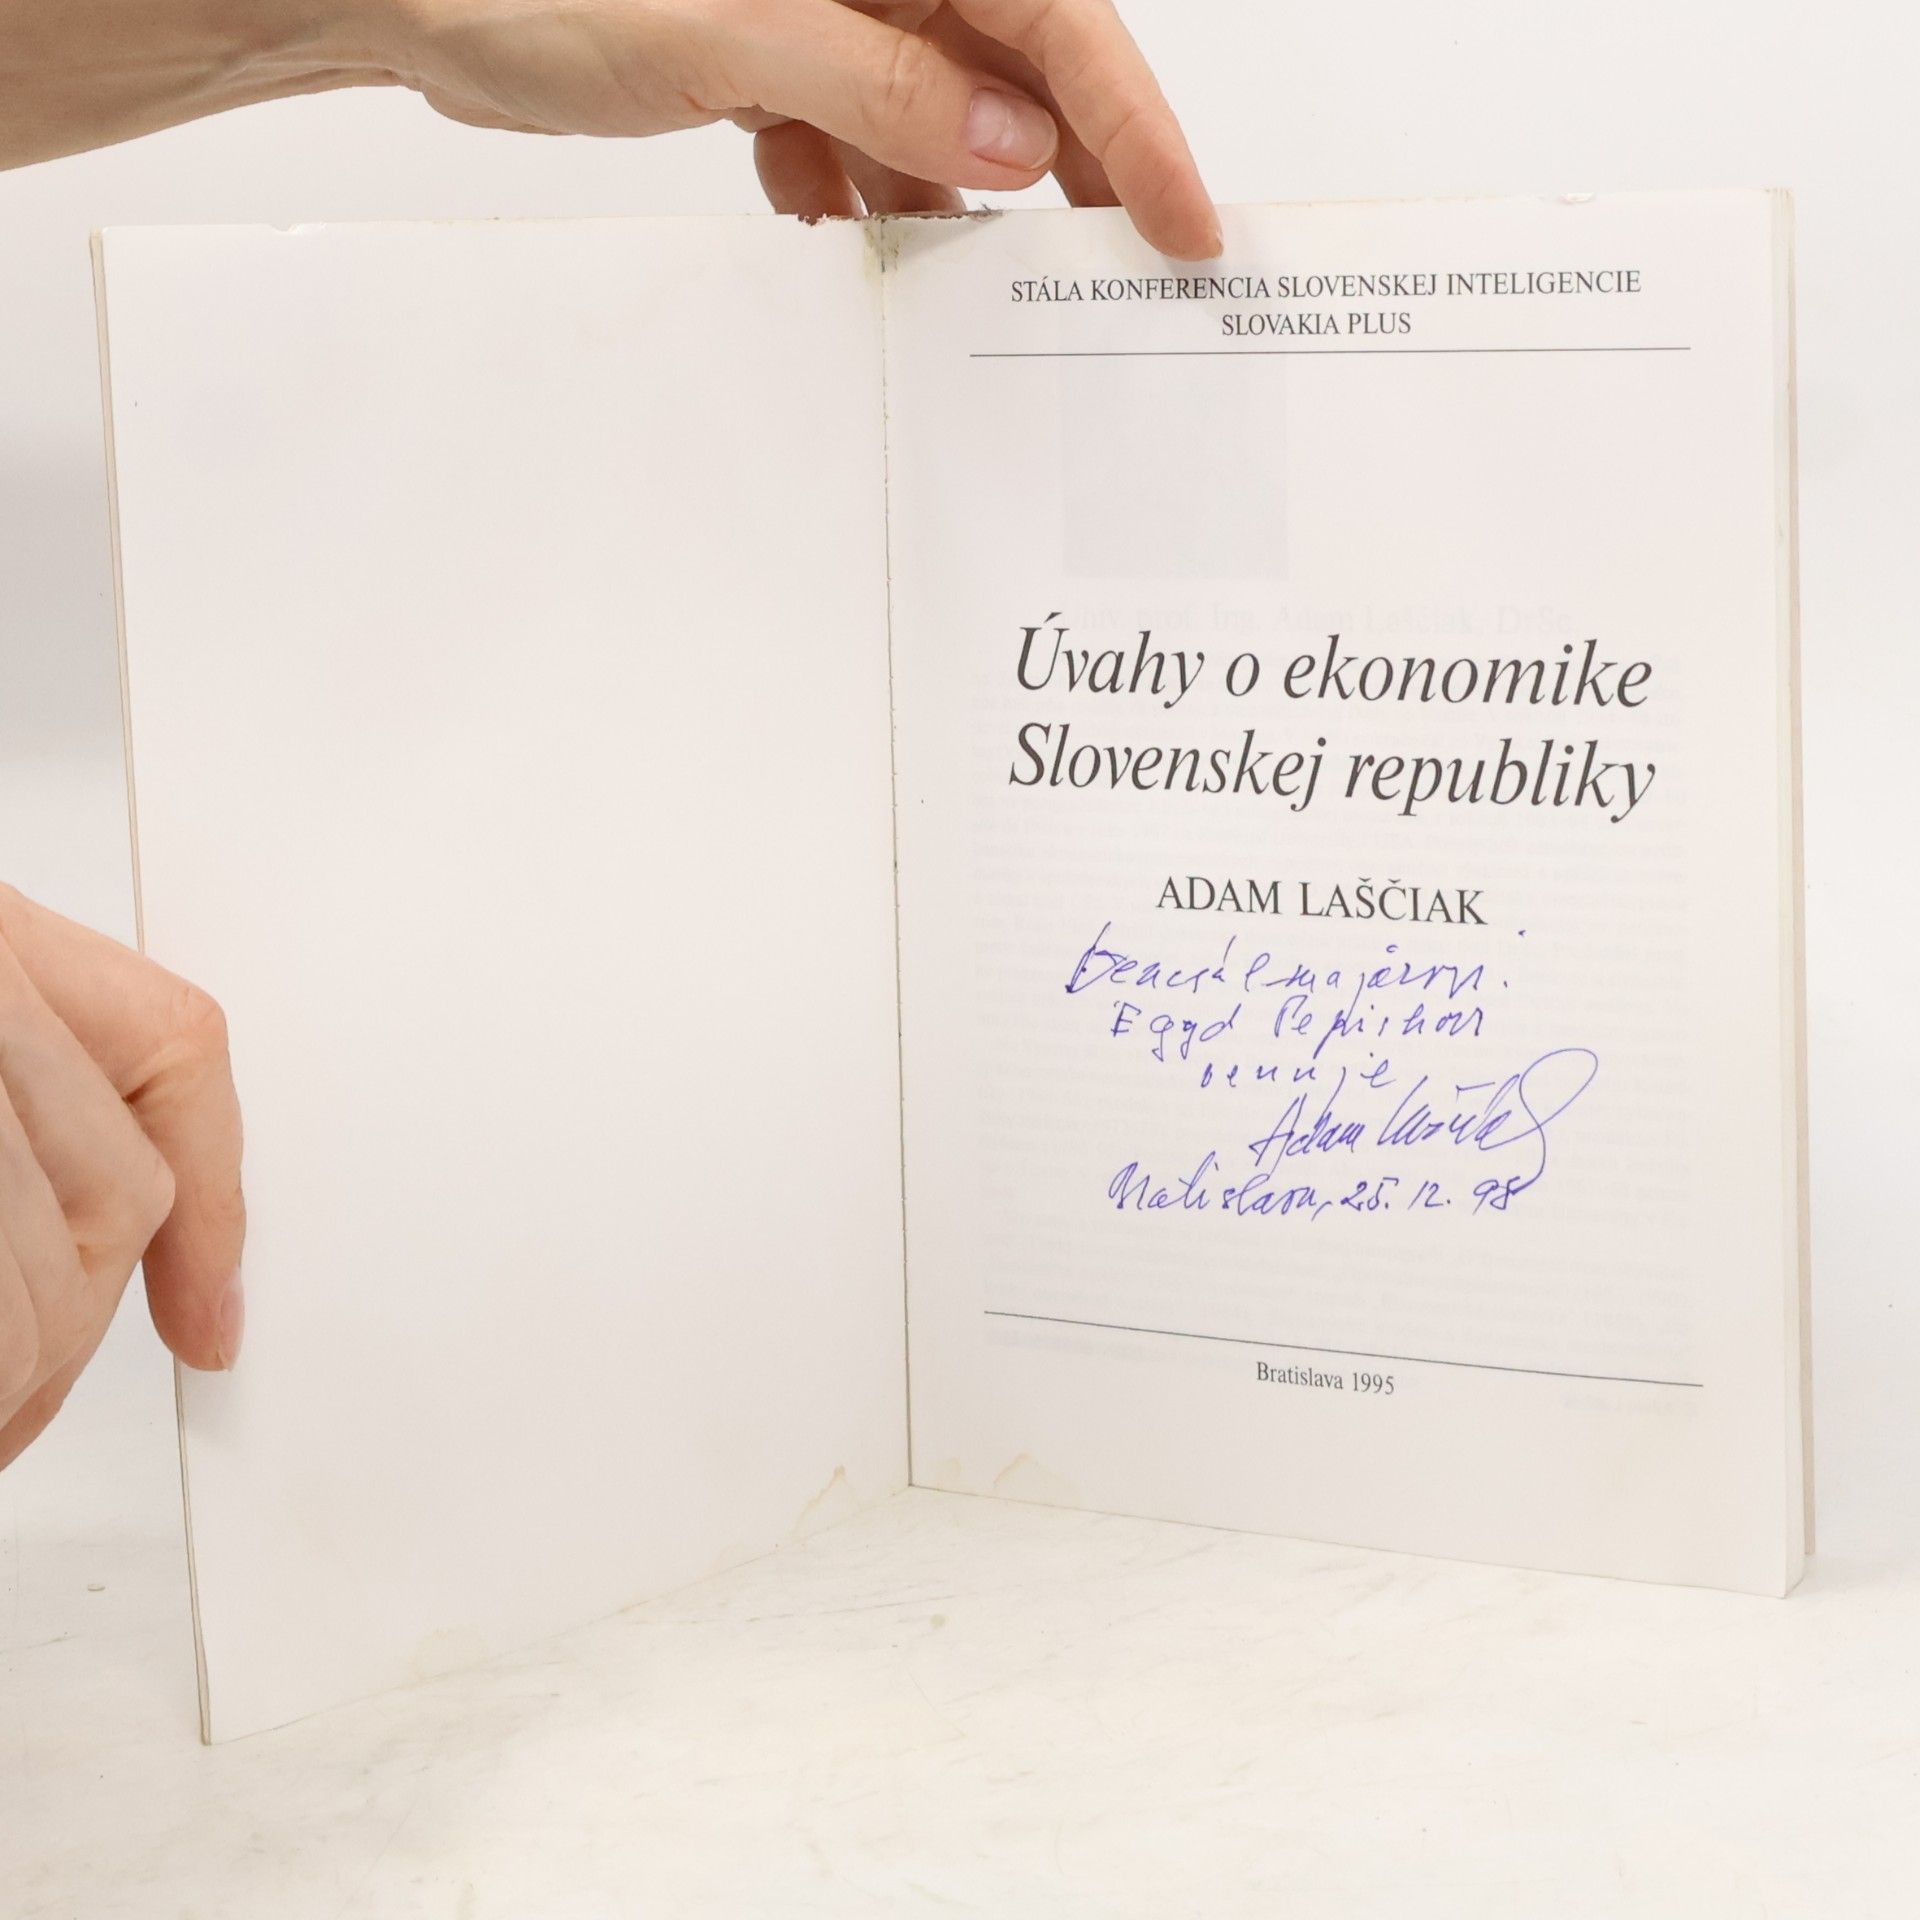 STÁLA KONFERENCIA SLOVENSKEJ INTELIGENCIE
SLOVAKIA PLUS
Úvahy o ekonomike
Slovenskej republiky
ADAM LAŠČIAK
Generálmajorovi
Egyd Pepichovi
venuje
Adam Laščiak
Bratislava, 25. 12. 98
Bratislava 1995